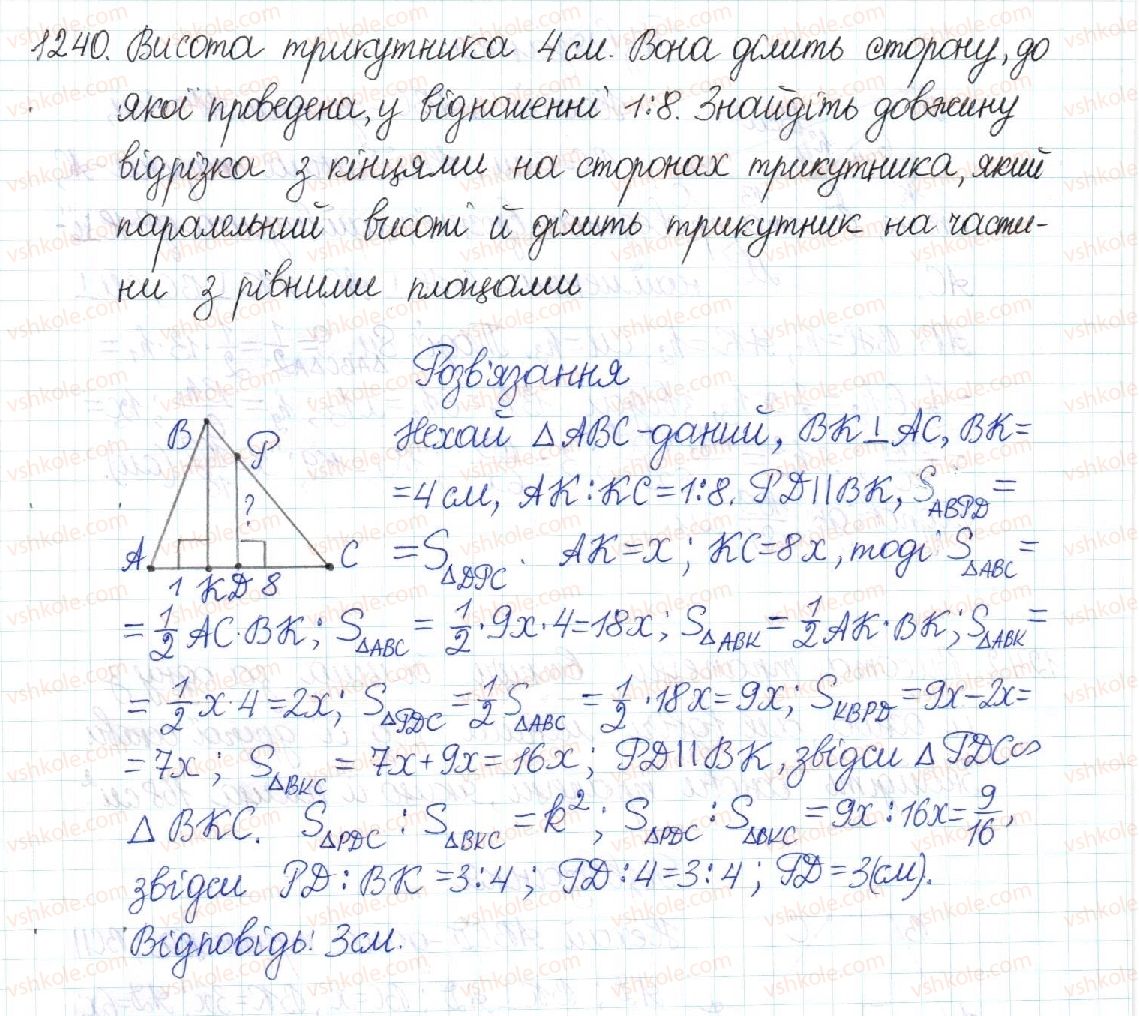 1240. Висота трикутника 4 см. Вона ділить сторону, до
якої проведена, у відношенні 1:8. Знайдіть довжину
відрізка з кінцями на сторонах трикутника, який
паралельний висоті й ділить трикутник на части-
ни з рівними площами
Розв'язання
B
P
?
A
1 K D 8
C
Нехай △ABC - даний, BK⊥AC, BK=
=4 см, AK:KC=1:8. PD||BK, S_ABPD=
=S_△DPC. AK=x; KC=8x, тоді S_△ABC=
=1/2 AC·BK; S_△ABC = 1/2·9x·4=18x; S_△ABK=1/2 AK·BK; S_△ABK=
=1/2 x·4=2x; S_△PDC=1/2 S_△ABC = 1/2·18x=9x; S_KBPD=9x-2x=
=7x; S_△BKC = 7x+9x=16x; PD||BK, звідси △PDC∞
△BKC. S_△PDC : S_△BKC = k²; S_△PDC : S_△BKC = 9x:16x=9/16,
звідси PD:BK=3:4; PD:4=3:4; PD=3(см).
Відповідь: 3см.
vshkole.com